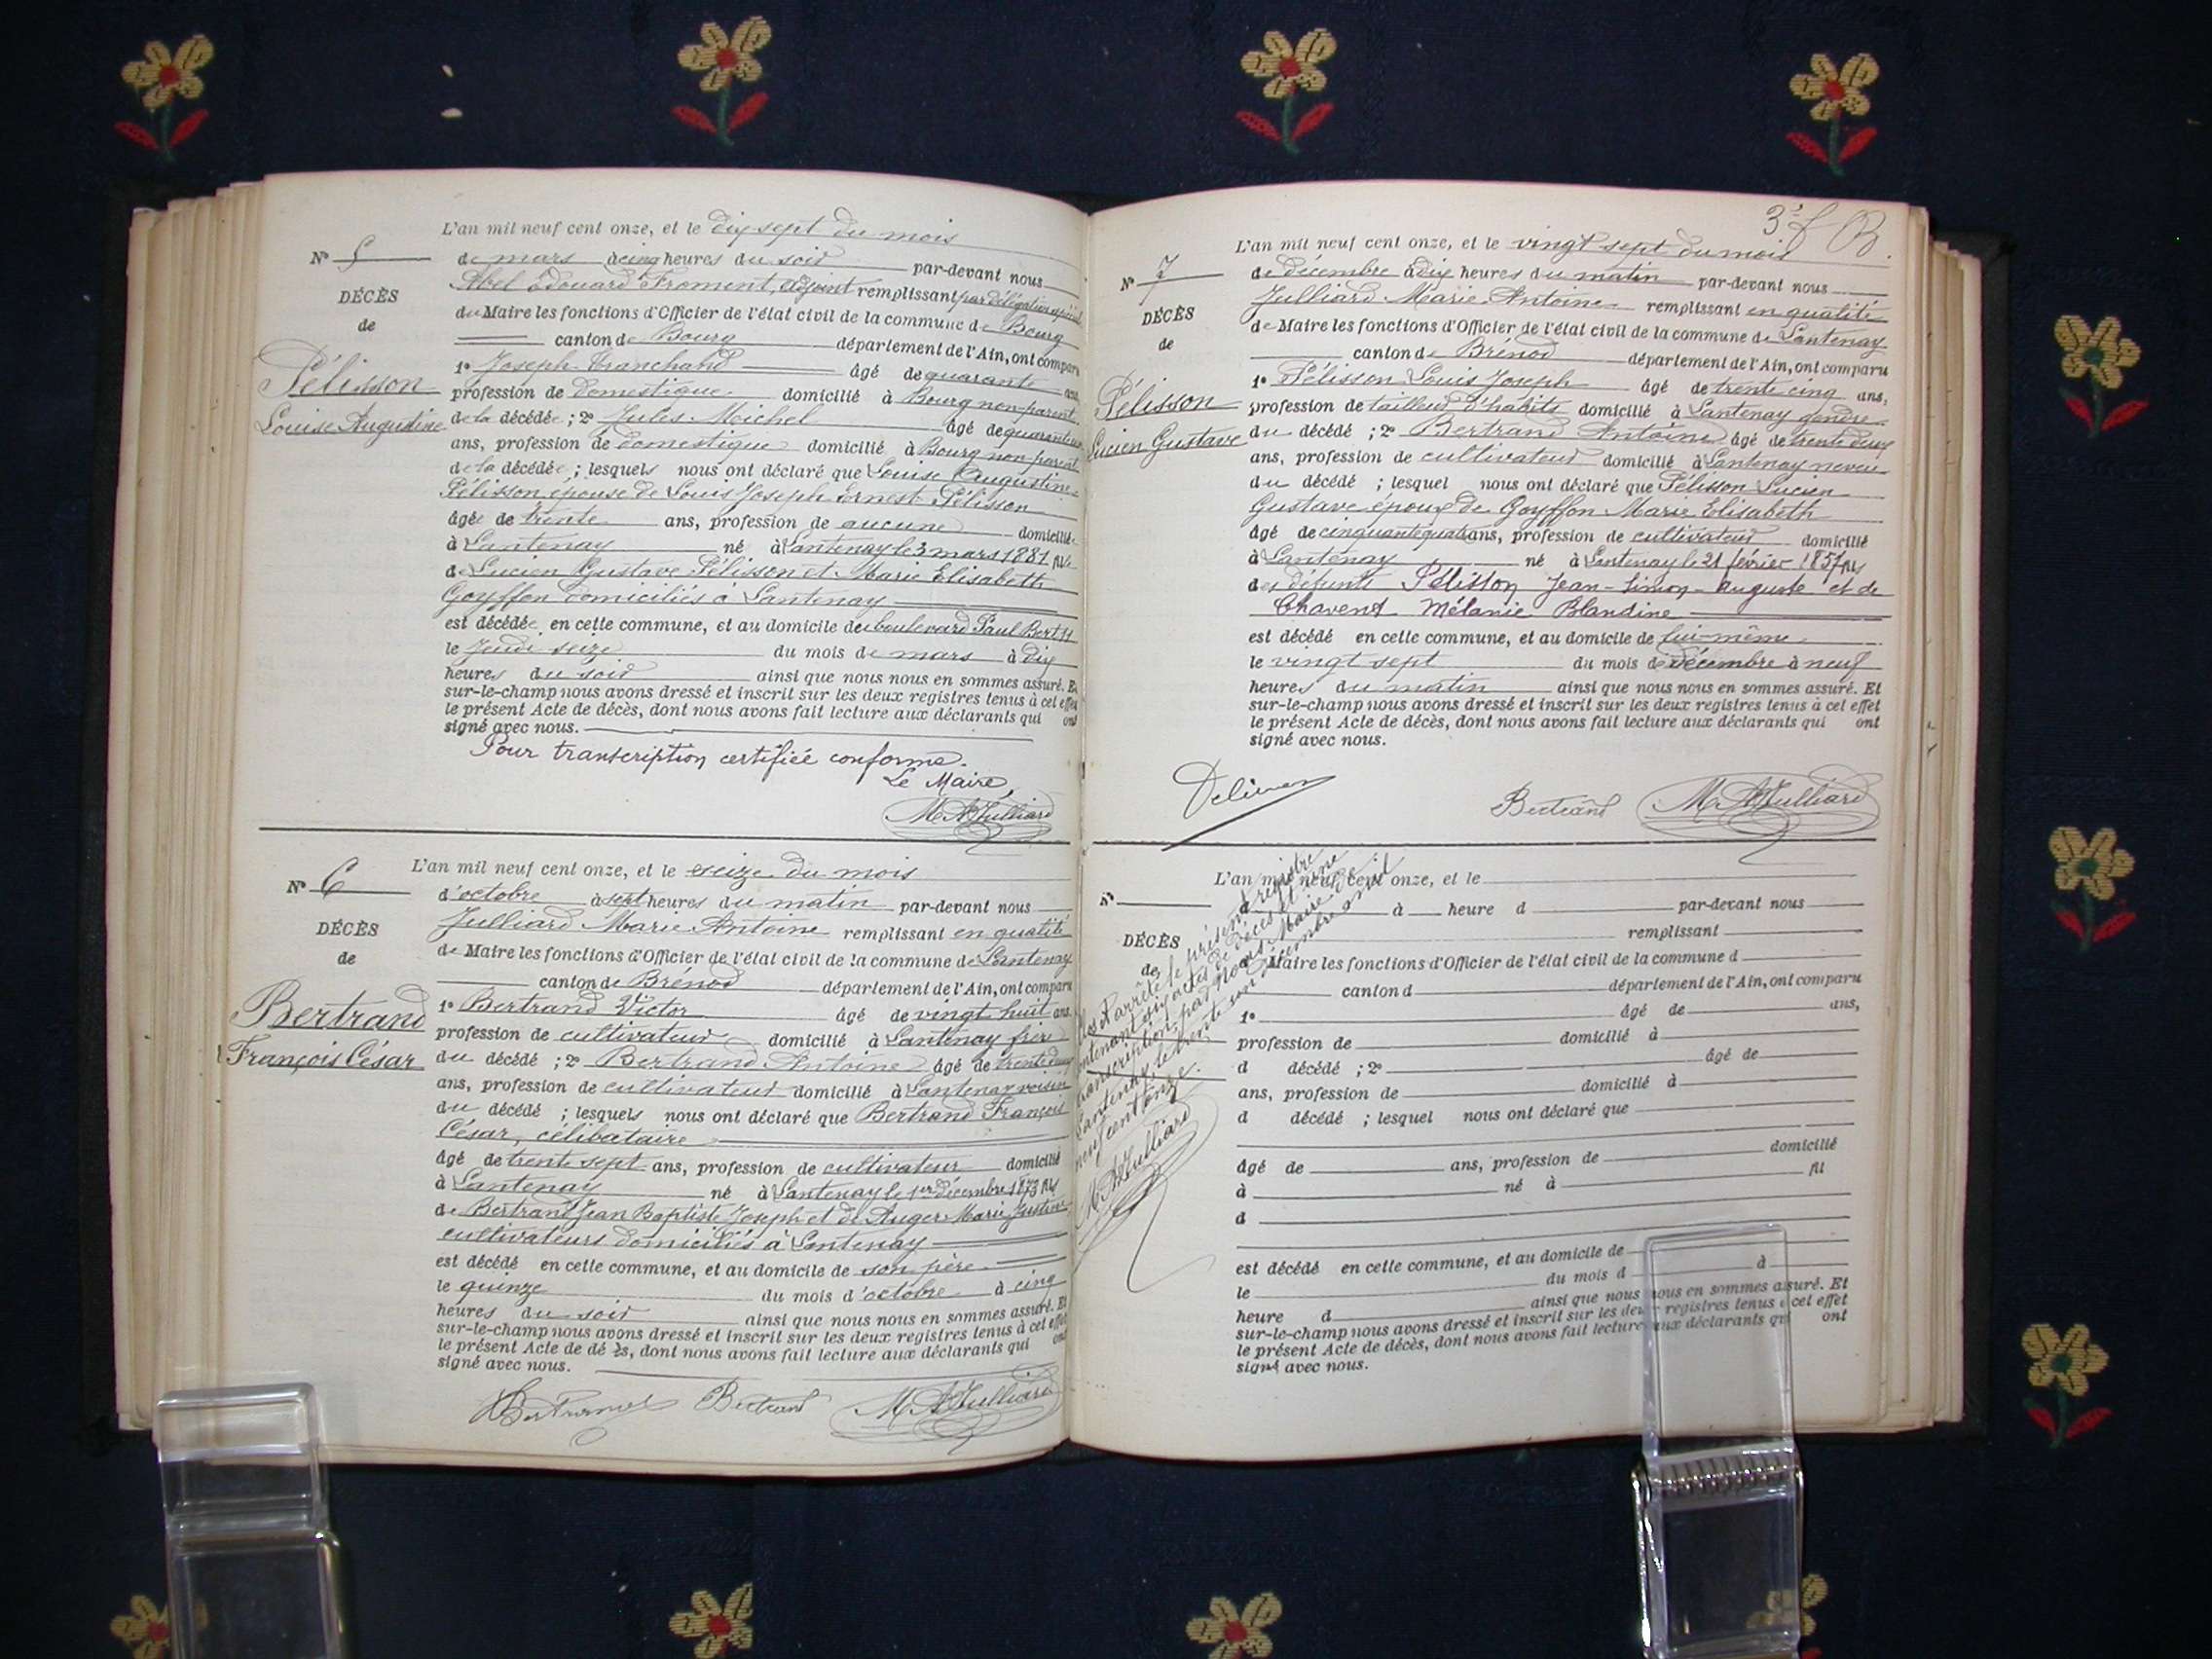 L'an mil neuf cent onze, et le dix sept du mois
N° 5
de mars à cinq heures du soir par-devant nous
Abel Edouard Froment, adjoint remplissant par délégation spéciale
DÉCÈS
du Maire les fonctions d'Officier de l'état civil de la commune de Bourg
de
canton de Bourg département de l'Ain, ont comparu
1° Joseph Tranchand âgé de quarante ans,
Pélisson
profession de domestique domicilié à Bourg non parent
Louise Augustine
de la décédée ; 2° Jules Michel âgé de
ans, profession de domestique domicilié à Bourg non parent
de la décédée ; lesquels nous ont déclaré que Louise Augustine
Pélisson, épouse de Louis Joseph Ernest Pélisson
âgée de trente ans, profession de aucune domiciliée
à Lantenay né à Lantenay le 3 mars 1881 fille
de Lucien Gustave Pélisson et Marie Elisabeth
Goyffon domiciliés à Lantenay
est décédée en cette commune, et au domicile de boulevard Paul Bert 11
le Jeudi seize du mois de mars à dix
heures du soir ainsi que nous nous en sommes assuré. Et
sur-le-champ nous avons dressé et inscrit sur les deux registres tenus à cet effet
le présent Acte de décès, dont nous avons fait lecture aux déclarants qui ont
signé avec nous.
Pour transcription certifiée conforme.
Le Maire,
M A Julliard
L'an mil neuf cent onze, et le seize du mois
N° 6
d'octobre à sept heures du matin par-devant nous
Julliard Marie Antoine remplissant en qualité
DÉCÈS
de Maire les fonctions d'Officier de l'état civil de la commune de Lantenay
de
canton de Brénod département de l'Ain, ont comparu
Bertrand
1° Bertrand Victor âgé de vingt huit ans
profession de cultivateur domicilié à Lantenay frère
François César
du décédé ; 2° Bertrand Antoine âgé de trente deux
ans, profession de cultivateur domicilié à Lantenay voisin
du décédé ; lesquels nous ont déclaré que Bertrand François
César, célibataire
âgé de trente sept ans, profession de cultivateur domicilié
à Lantenay né à Lantenay le 1er décembre 1873 fils
de Bertrand Jean Baptiste Joseph et de Auger Marie Justine
cultivateurs domiciliés à Lantenay
est décédé en cette commune, et au domicile de son père
le quinze du mois d'octobre à cinq
heures du soir ainsi que nous nous en sommes assuré. Et
sur-le-champ nous avons dressé et inscrit sur les deux registres tenus à cet effet
le présent Acte de dé ès, dont nous avons fait lecture aux déclarants qui ont
signé avec nous.
Bertrand M A Julliard
L'an mil neuf cent onze, et le vingt sept du mois
N° 7
de décembre à dix heures du matin par-devant nous
Julliard Marie Antoine remplissant en qualité
DÉCÈS
de Maire les fonctions d'Officier de l'état civil de la commune de Lantenay
de
canton de Brénod département de l'Ain, ont comparu
1° Pélisson Louis Joseph âgé de trente cinq ans,
Pélisson
profession de tailleur d'habits domicilié à Lantenay gendre
Lucien Gustave
du décédé ; 2° Bertrand Antoine âgé de trente deux
ans, profession de cultivateur domicilié à Lantenay neveu
du décédé ; lesquel nous ont déclaré que Pélisson Lucien
Gustave époux de Goyffon Marie Elisabeth
âgé de cinquante quatre ans, profession de cultivateur domicilié
à Lantenay né à Lantenay le 21 février 1857 fils
des défunts Pélisson Jean-Simon-Auguste et de
Chavent Mélanie Blandine
est décédé en cette commune, et au domicile de lui-même
le vingt sept du mois de décembre à neuf
heures du matin ainsi que nous nous en sommes assuré. Et
sur-le-champ nous avons dressé et inscrit sur les deux registres tenus à cet effet
le présent Acte de décès, dont nous avons fait lecture aux déclarants qui ont
signé avec nous.
Bertrand M A Julliard
L'an mil neuf cent onze, et le
N°
à heure d par-devant nous
remplissant
DÉCÈS
d Maire les fonctions d'Officier de l'état civil de la commune d
de
canton d département de l'Ain, ont comparu
1° âgé de ans,
profession de domicilié à
d décédé ; 2° âgé de
ans, profession de domicilié à
d décédé ; lesquel nous ont déclaré que
âgé de ans, profession de domicilié
à né à fil
d
est décédé en cette commune, et au domicile de
le du mois d à
heure d ainsi que nous nous en sommes assuré. Et
sur-le-champ nous avons dressé et inscrit sur les deux registres tenus à cet effet
le présent Acte de décès, dont nous avons fait lecture aux déclarants qui ont
signé avec nous.
Clos et arrêté le présent registre
contenant six actes de décès et une
transcription, par nous Maire de
Lantenay, le trente un décembre mil
neuf cent onze.
M A Julliard